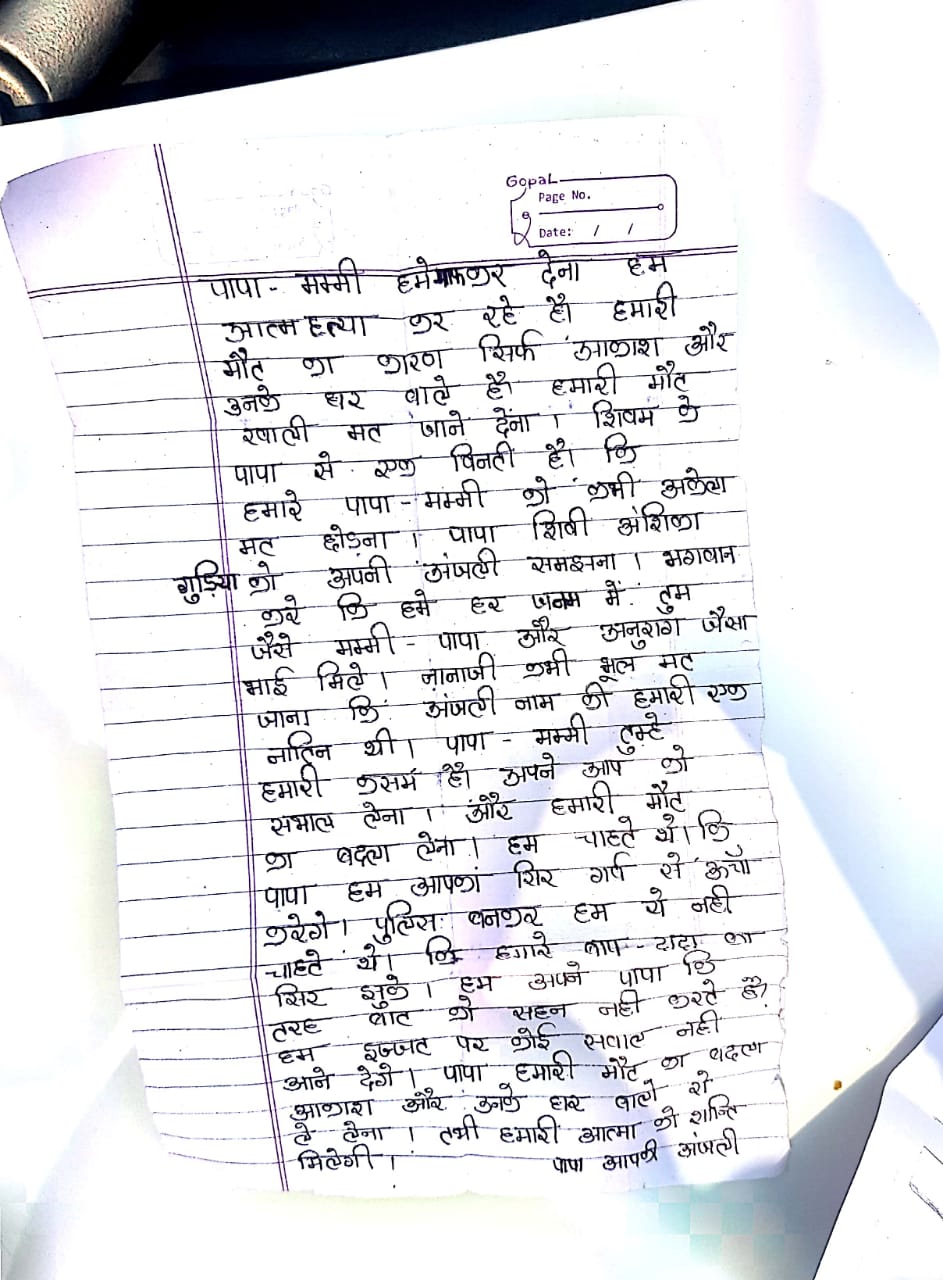 Gopal
Page No.
Date: / /
पापा - मम्मी हमे माफ कर देना हम
आत्महत्या कर रहे है। हमारी
मौत का कारण सिर्फ आकाश और
उनके घर वाले है। हमारी मौत
खाली मत जाने देंना । शिवम के
पापा से एक विनती है। कि
हमारे पापा - मम्मी को कभी अकेला
मत छोडना । पापा शिवी अंशिका
गुड़िया को अपनी अंजली समझना । भगवान
करे कि हमे हर जनम में तुम
जैसे मम्मी - पापा और अनुराग जैसा
भाई मिले । नानाजी कभी भूल मत
जाना कि अंजली नाम की हमारी एक
नातिन थी । पापा - मम्मी तुम्हे
हमारी कसम है। अपने आप को
सभाल लेना । और हमारी मौत
का बदला लेना । हम चाहते थे। कि
पापा हम आपका सिर गर्व से ऊंचा
करेगे । पुलिस बनकर हम ये नही
चाहते थे। कि हमारे बाप - दादा का
सिर झुके । हम अपने पापा कि
तरह बात को सहन नही करते है।
हम इज्जत पर कोई सवाल नही
आने देगे । पापा हमारी मौत का बदला
आकाश और उनके घर वालो से
ले लेना । तभी हमारी आत्मा को शान्ति
मिलेगी ।
पापा आपकी अंजली